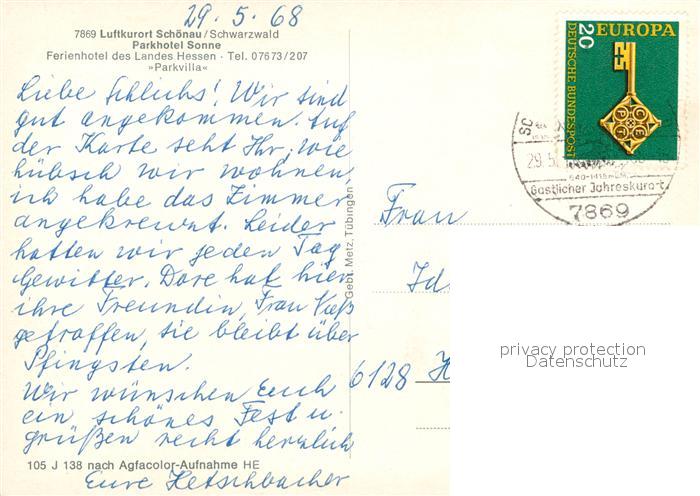 29.5.68
7869 Luftkurort Schönau/Schwarzwald
Parkhotel Sonne
Ferienhotel des Landes Hessen · Tel. 07673/207
»Parkvilla«
Liebe Schlichs! Wir sind
gut angekommen. Auf
der Karte seht Ihr, wie
hübsch wir wohnen,
ich habe das Zimmer
angekreuzt. Leider
hatten wir jeden Tag
Gewitter. Dore hat hier
ihre Freundin, Frau
getroffen, sie bleibt über
Pfingsten.
Wir wünschen Euch
ein schönes Fest u.
grüßen recht herzlich
105 J 138 nach Agfacolor-Aufnahme HE
Eure Hetschbacher
Gebr. Metz, Tübingen
EUROPA
20
DEUTSCHE BUNDESPOST
CEPT
29.5.
Gastlicher Jahreskurort
7869
Frau
6128 H
privacy protection
Datenschutz